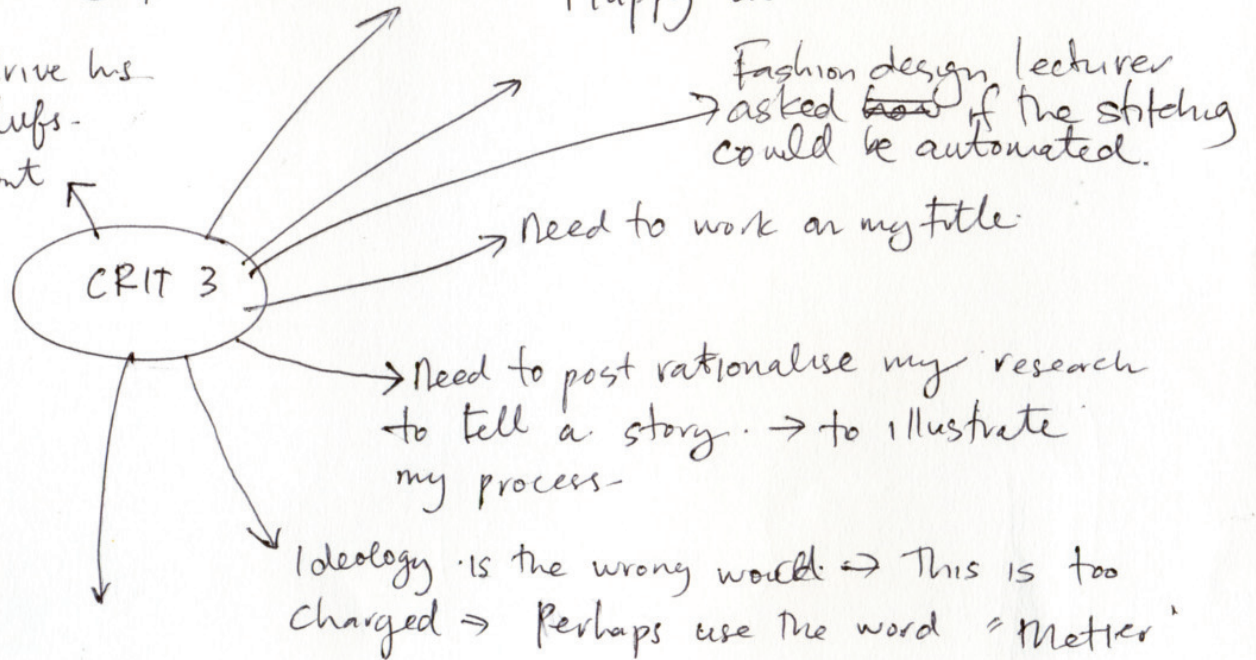 Happy
Fashion design lecturer
asked how if the stitching
could be automated.
need to work on my title.
CRIT 3
need to post rationalise my research
to tell a story. → to illustrate
my process-
Ideology is the wrong world. → This is too
charged → Perhaps use the word "Metier"